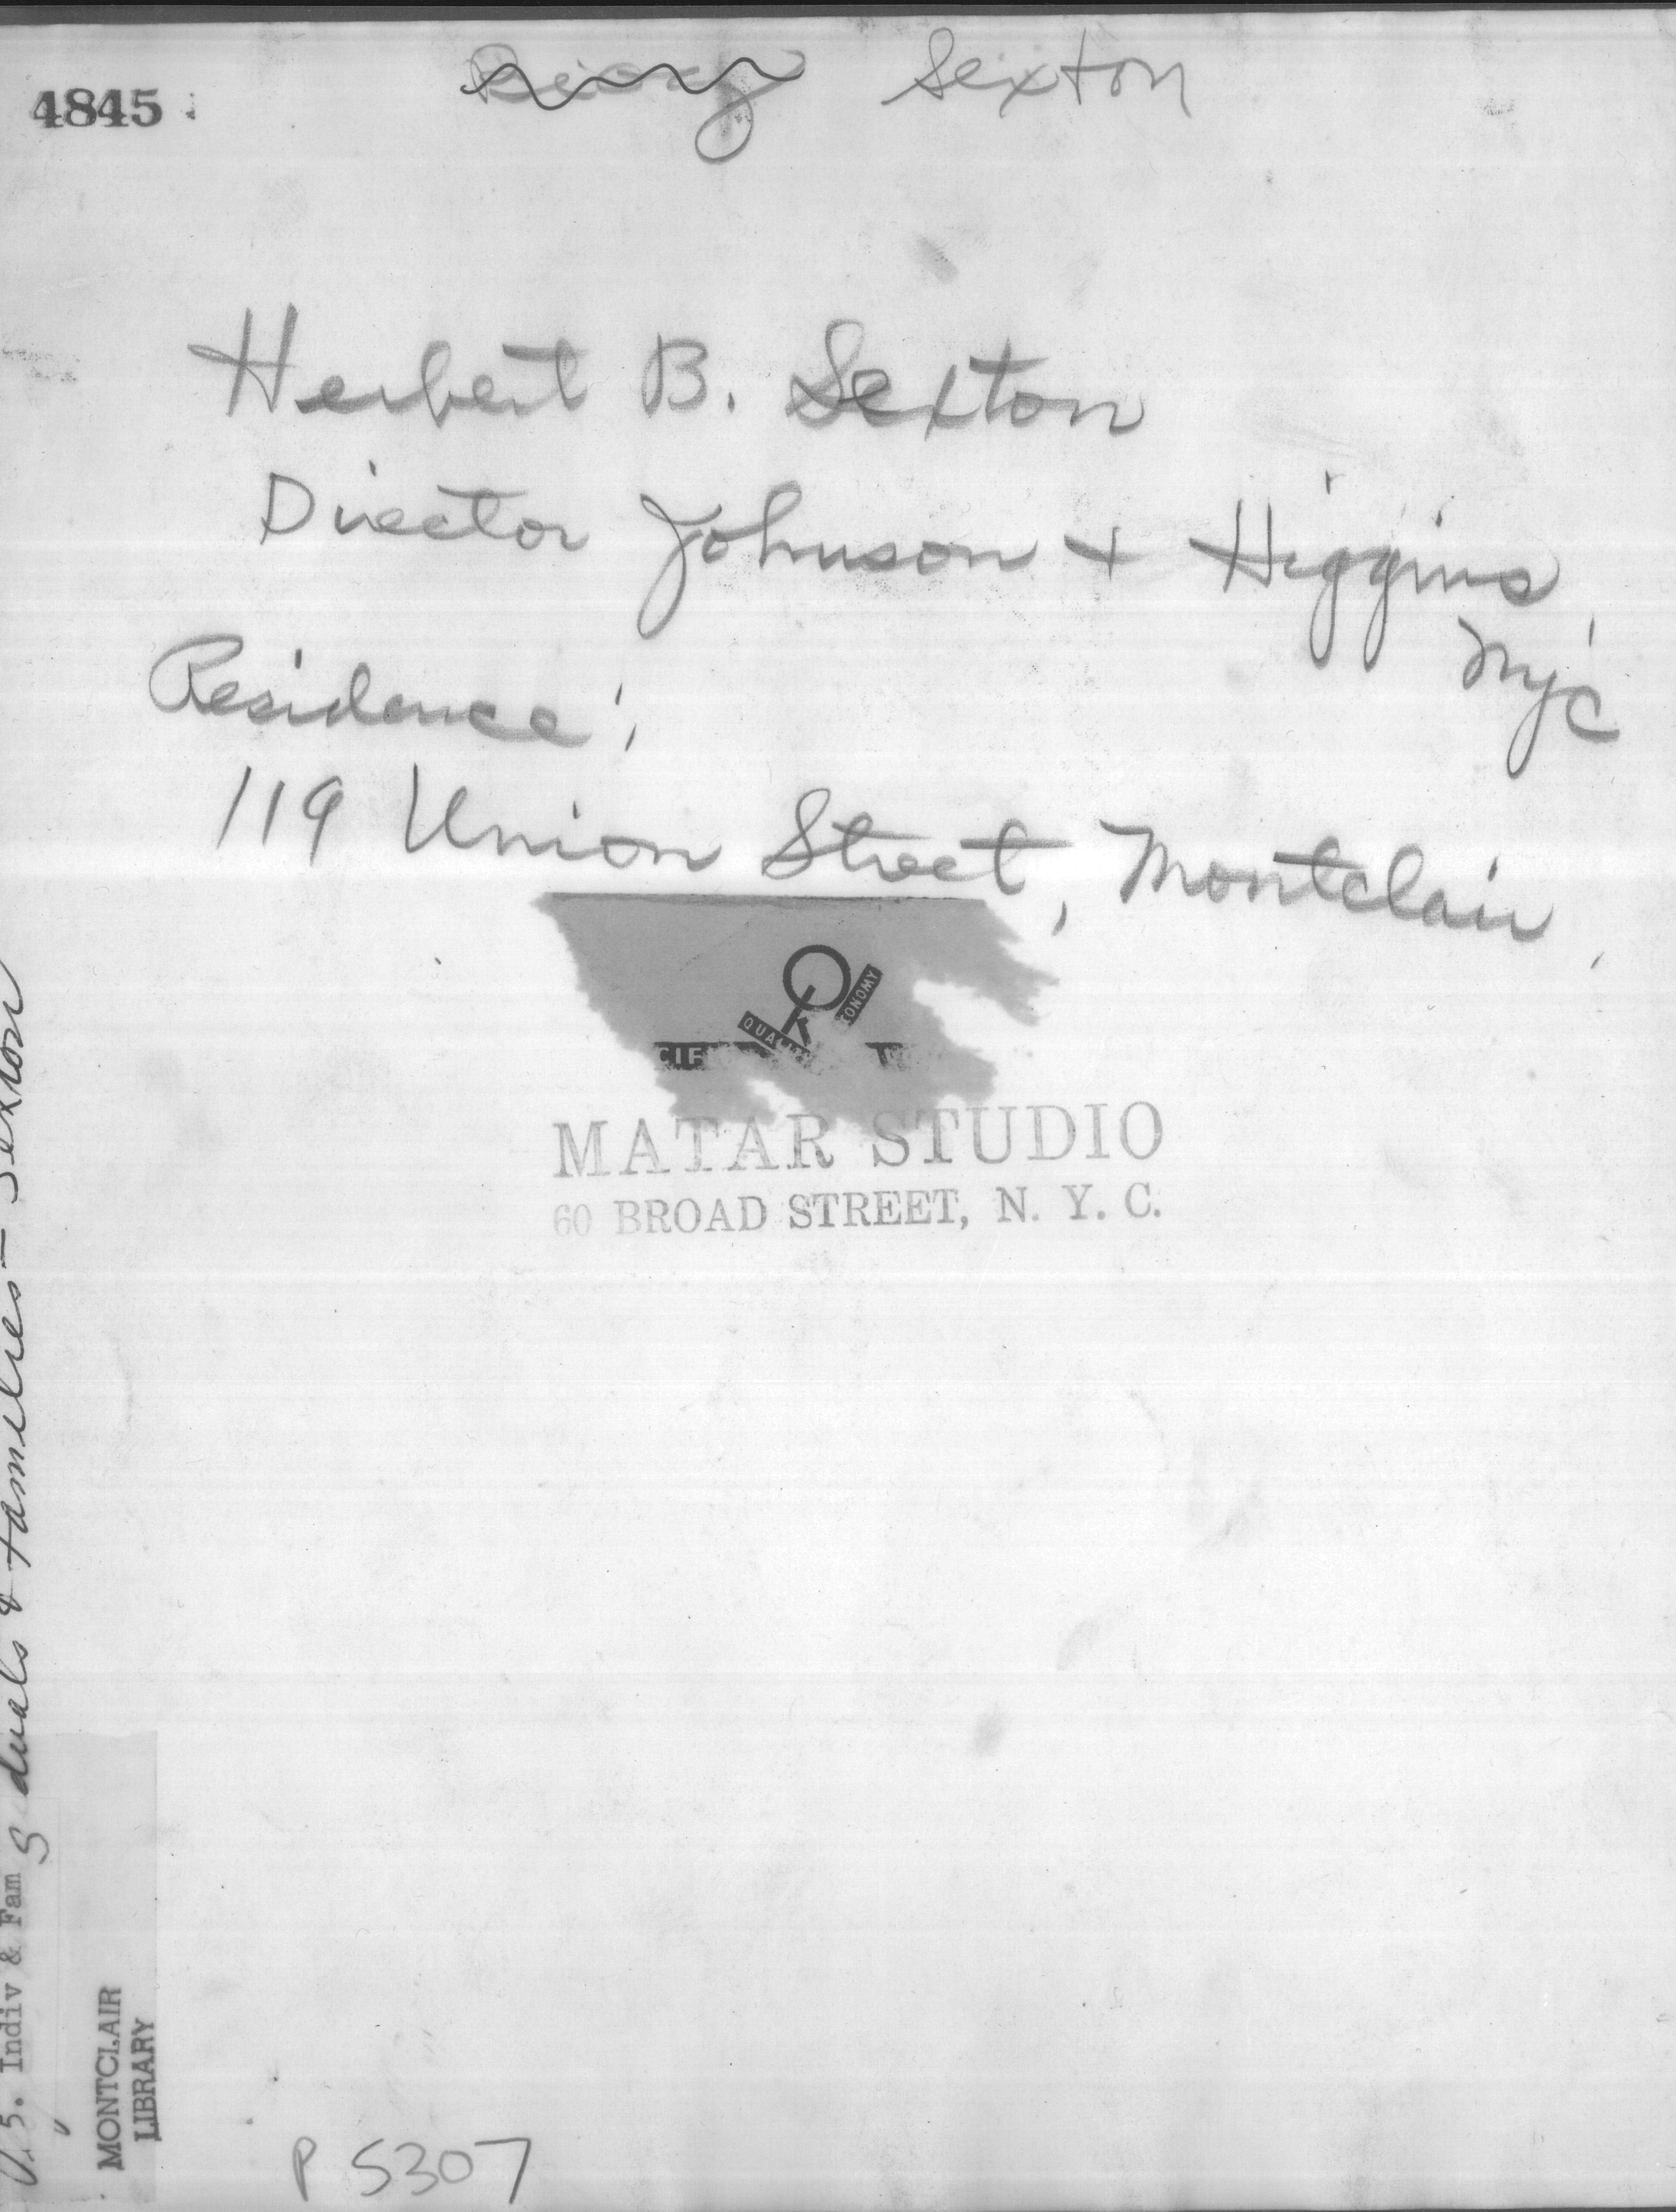 4845
Sexton
Herbert B. Sexton
Director Johnson + Higgins
NYC
Residence:
119 Union Street, Montclair,
CIF
MATAR STUDIO
60 BROAD STREET, N. Y. C.
duals & families - Sexton
V. 5. Indiv & Fam S
MONTCLAIR
LIBRARY
P 5307